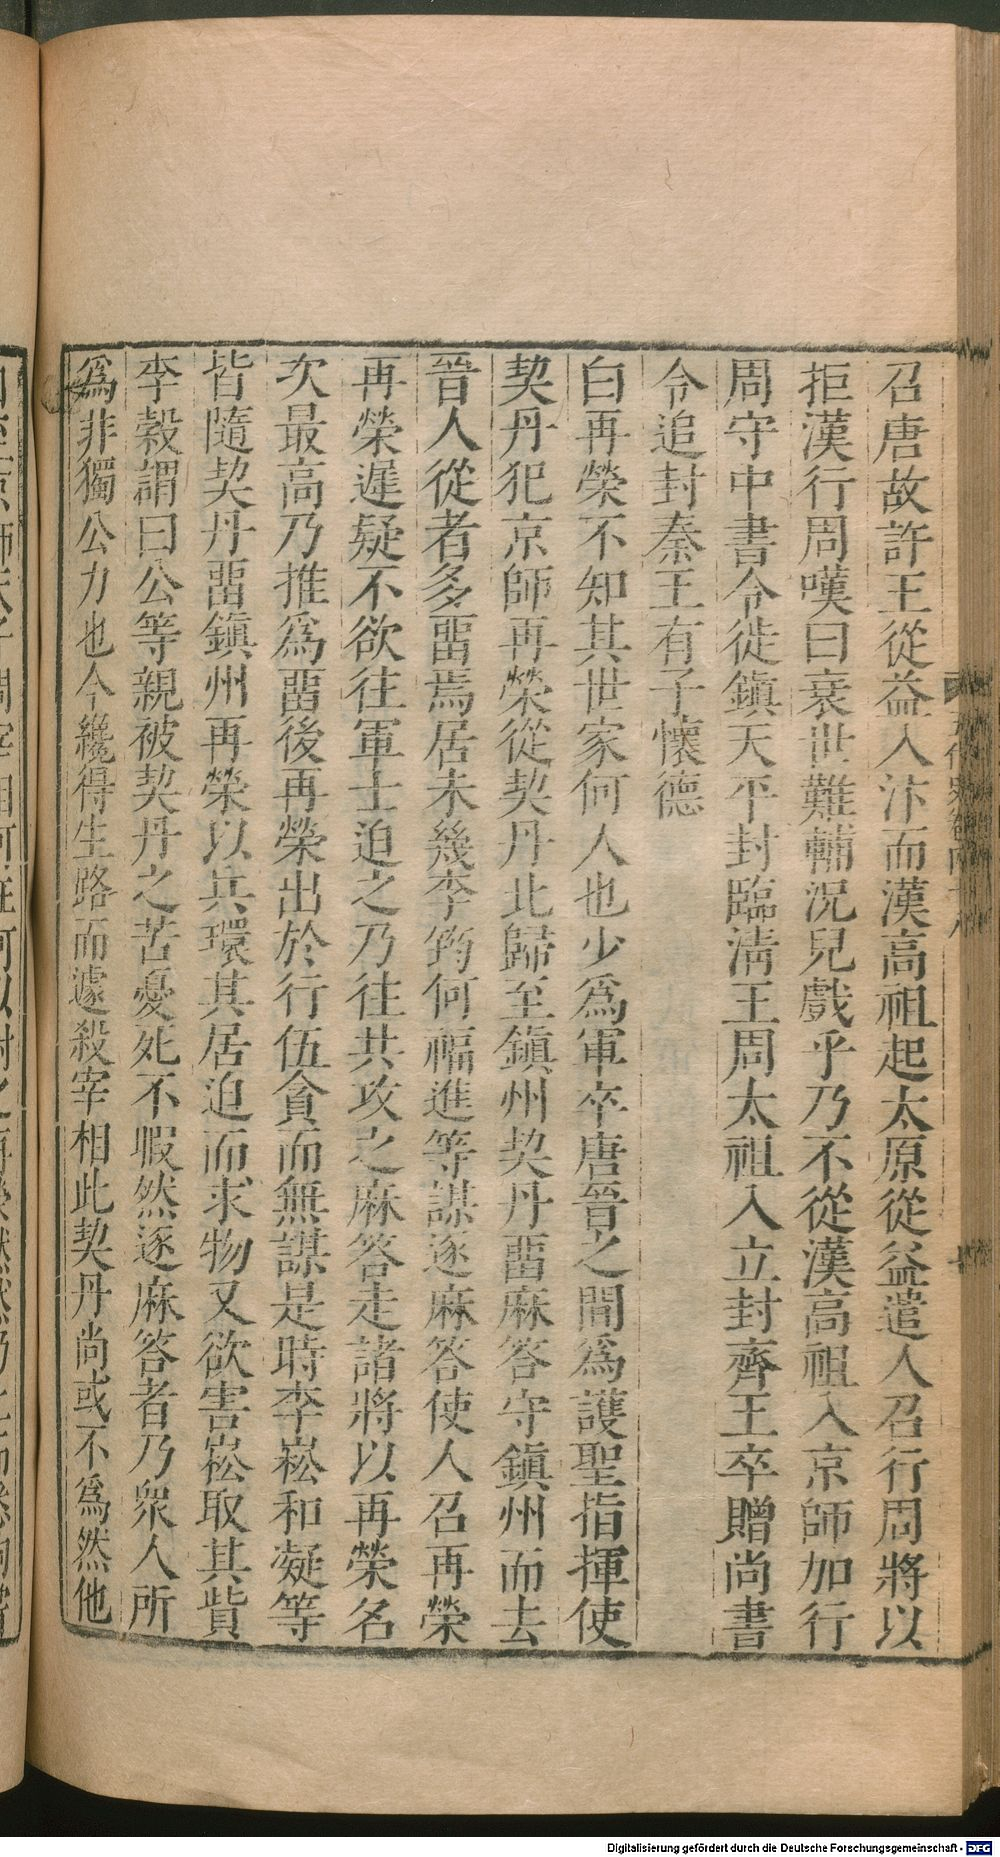 召唐故許王從益入汴而漢高祖起太原從益遣人召行周將以
拒漢行周嘆曰衰世難輔況兒戲乎乃不從漢高祖入京師加行
周守中書令徙鎮天平封臨淸王周太祖入立封齊王卒贈尚書
令追封秦王有子懷德
白再榮不知其世家何人也少爲軍卒唐晉之間爲護聖指揮使
契丹犯京師再榮從契丹北歸至鎮州契丹畱麻荅守鎮州而去
晉人從者多畱焉居未幾李筠何福進等謀逐麻荅使人召再榮
再榮遲疑不欲往軍士迫之乃往共攻之麻荅走諸將以再榮名
次最高乃推爲畱後再榮出於行伍貪而無謀是時李崧和凝等
皆隨契丹畱鎮州再榮以兵環其居迫而求物又欲害崧取其貲
李穀謂曰公等親被契丹之苦憂死不暇然逐麻荅者乃衆人所
爲非獨公力也今纔得生路而遽殺宰相此契丹尚或不爲然他
Digitalisierung gefördert durch die Deutsche Forschungsgemeinschaft - DFG